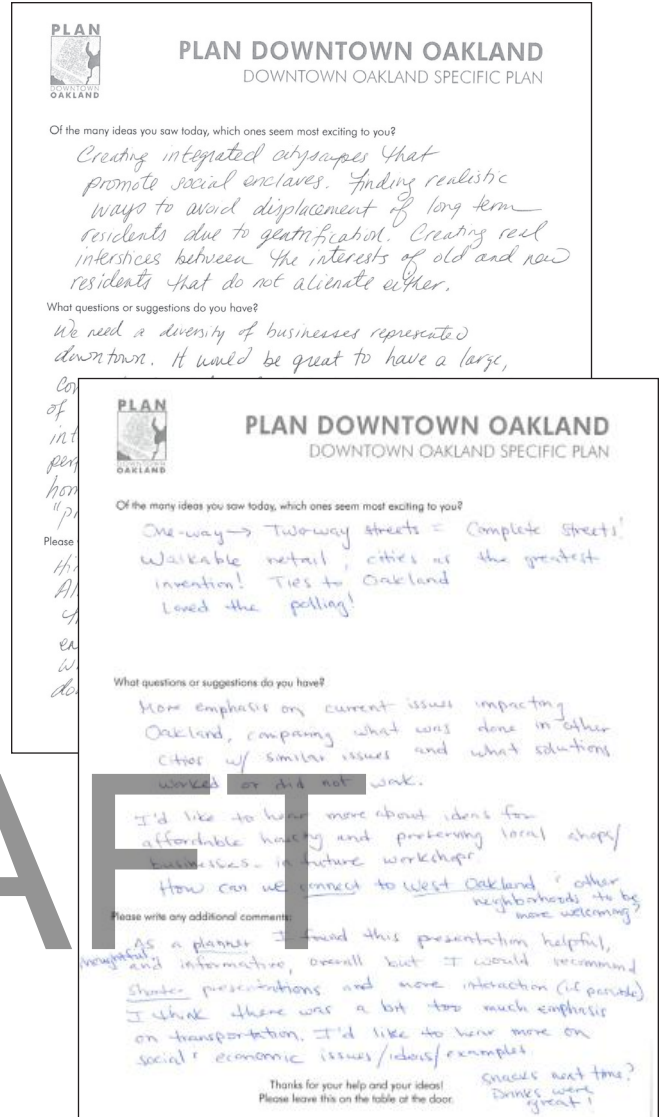 PLAN
DOWNTOWN
OAKLAND
PLAN DOWNTOWN OAKLAND
DOWNTOWN OAKLAND SPECIFIC PLAN
Of the many ideas you saw today, which ones seem most exciting to you?
Creating integrated cityscapes that
promote social enclaves. Finding realistic
ways to avoid displacement of long term
residents due to gentrification. Creating real
interstices between the interests of old and new
residents that do not alienate either.
What questions or suggestions do you have?
We need a diversity of businesses represented
downtown. It would be great to have a large,
of
Please
PLAN
DOWNTOWN
OAKLAND
PLAN DOWNTOWN OAKLAND
DOWNTOWN OAKLAND SPECIFIC PLAN
Of the many ideas you saw today, which ones seem most exciting to you?
One-way → Two-way streets = Complete Streets!
Walkable retail, cities as the greatest
invention! Ties to Oakland
Loved the polling!
What questions or suggestions do you have?
More emphasis on current issues impacting
Oakland, comparing what was done in other
cities w/ similar issues and what solutions
worked or did not work.
I'd like to hear more about ideas for
affordable housing and preserving local shops/
businesses - in future workshops.
How can we connect to West Oakland & other
neighborhoods to be
more welcoming?
Please write any additional comments:
As a planner I found this presentation helpful,
thoughtful, and informative, overall but I would recommend
shorter presentations and more interaction (if possible)
I think there was a bit too much emphasis
on transportation. I'd like to hear more on
social & economic issues/ideas/examples.
Snacks next time?
Drinks were
great!
Thanks for your help and your ideas!
Please leave this on the table at the door.
AFT